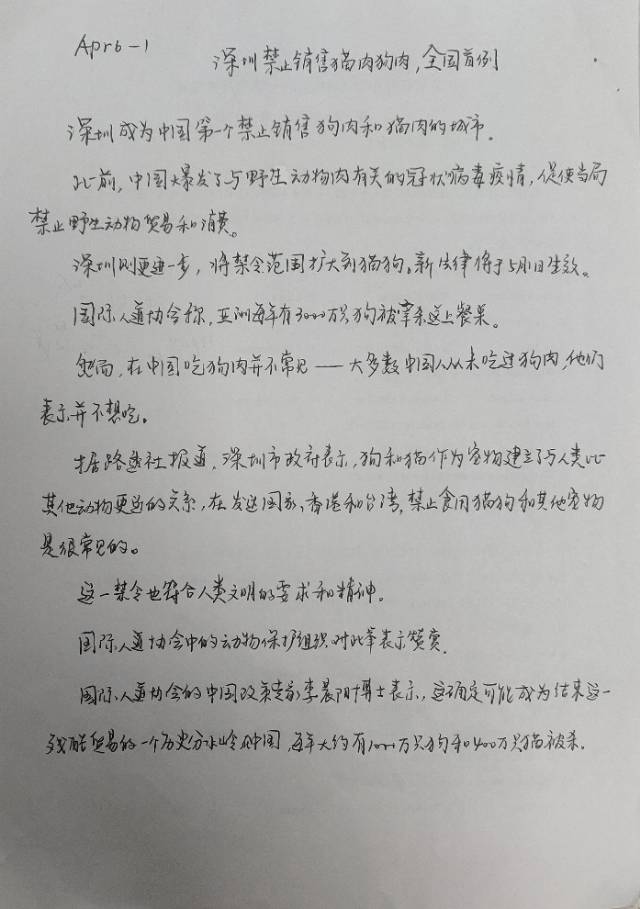 Apr6-1
深圳禁止销售猫肉狗肉,全国首例
深圳成为中国第一个禁止销售狗肉和猫肉的城市.
此前,中国爆发了与野生动物肉有关的冠状病毒疫情,促使当局
禁止野生动物贸易和消费。
深圳则更进一步,将禁令范围扩大到猫狗。新法律将于5月1日生效。
国际人道协会称,亚洲每年有3000万只狗被宰杀送上餐桌。
然而,在中国吃狗肉并不常见——大多数中国人从未吃过狗肉,他们
表示并不想吃。
据路透社报道,深圳市政府表示,狗和猫作为宠物建立了与人类比
其他动物更近的关系,在发达国家、香港和台湾,禁止食用猫狗和其他宠物
是很常见的。
这一禁令也符合人类文明的要求和精神。
国际人道协会中的动物保护组织对此举表示赞赏.
国际人道协会的中国政策专家李晨阳博士表示,这确定可能成为结束这一
残酷贸易的一个历史分水岭,中国,每年大约有1000万只狗和400万只猫被杀.